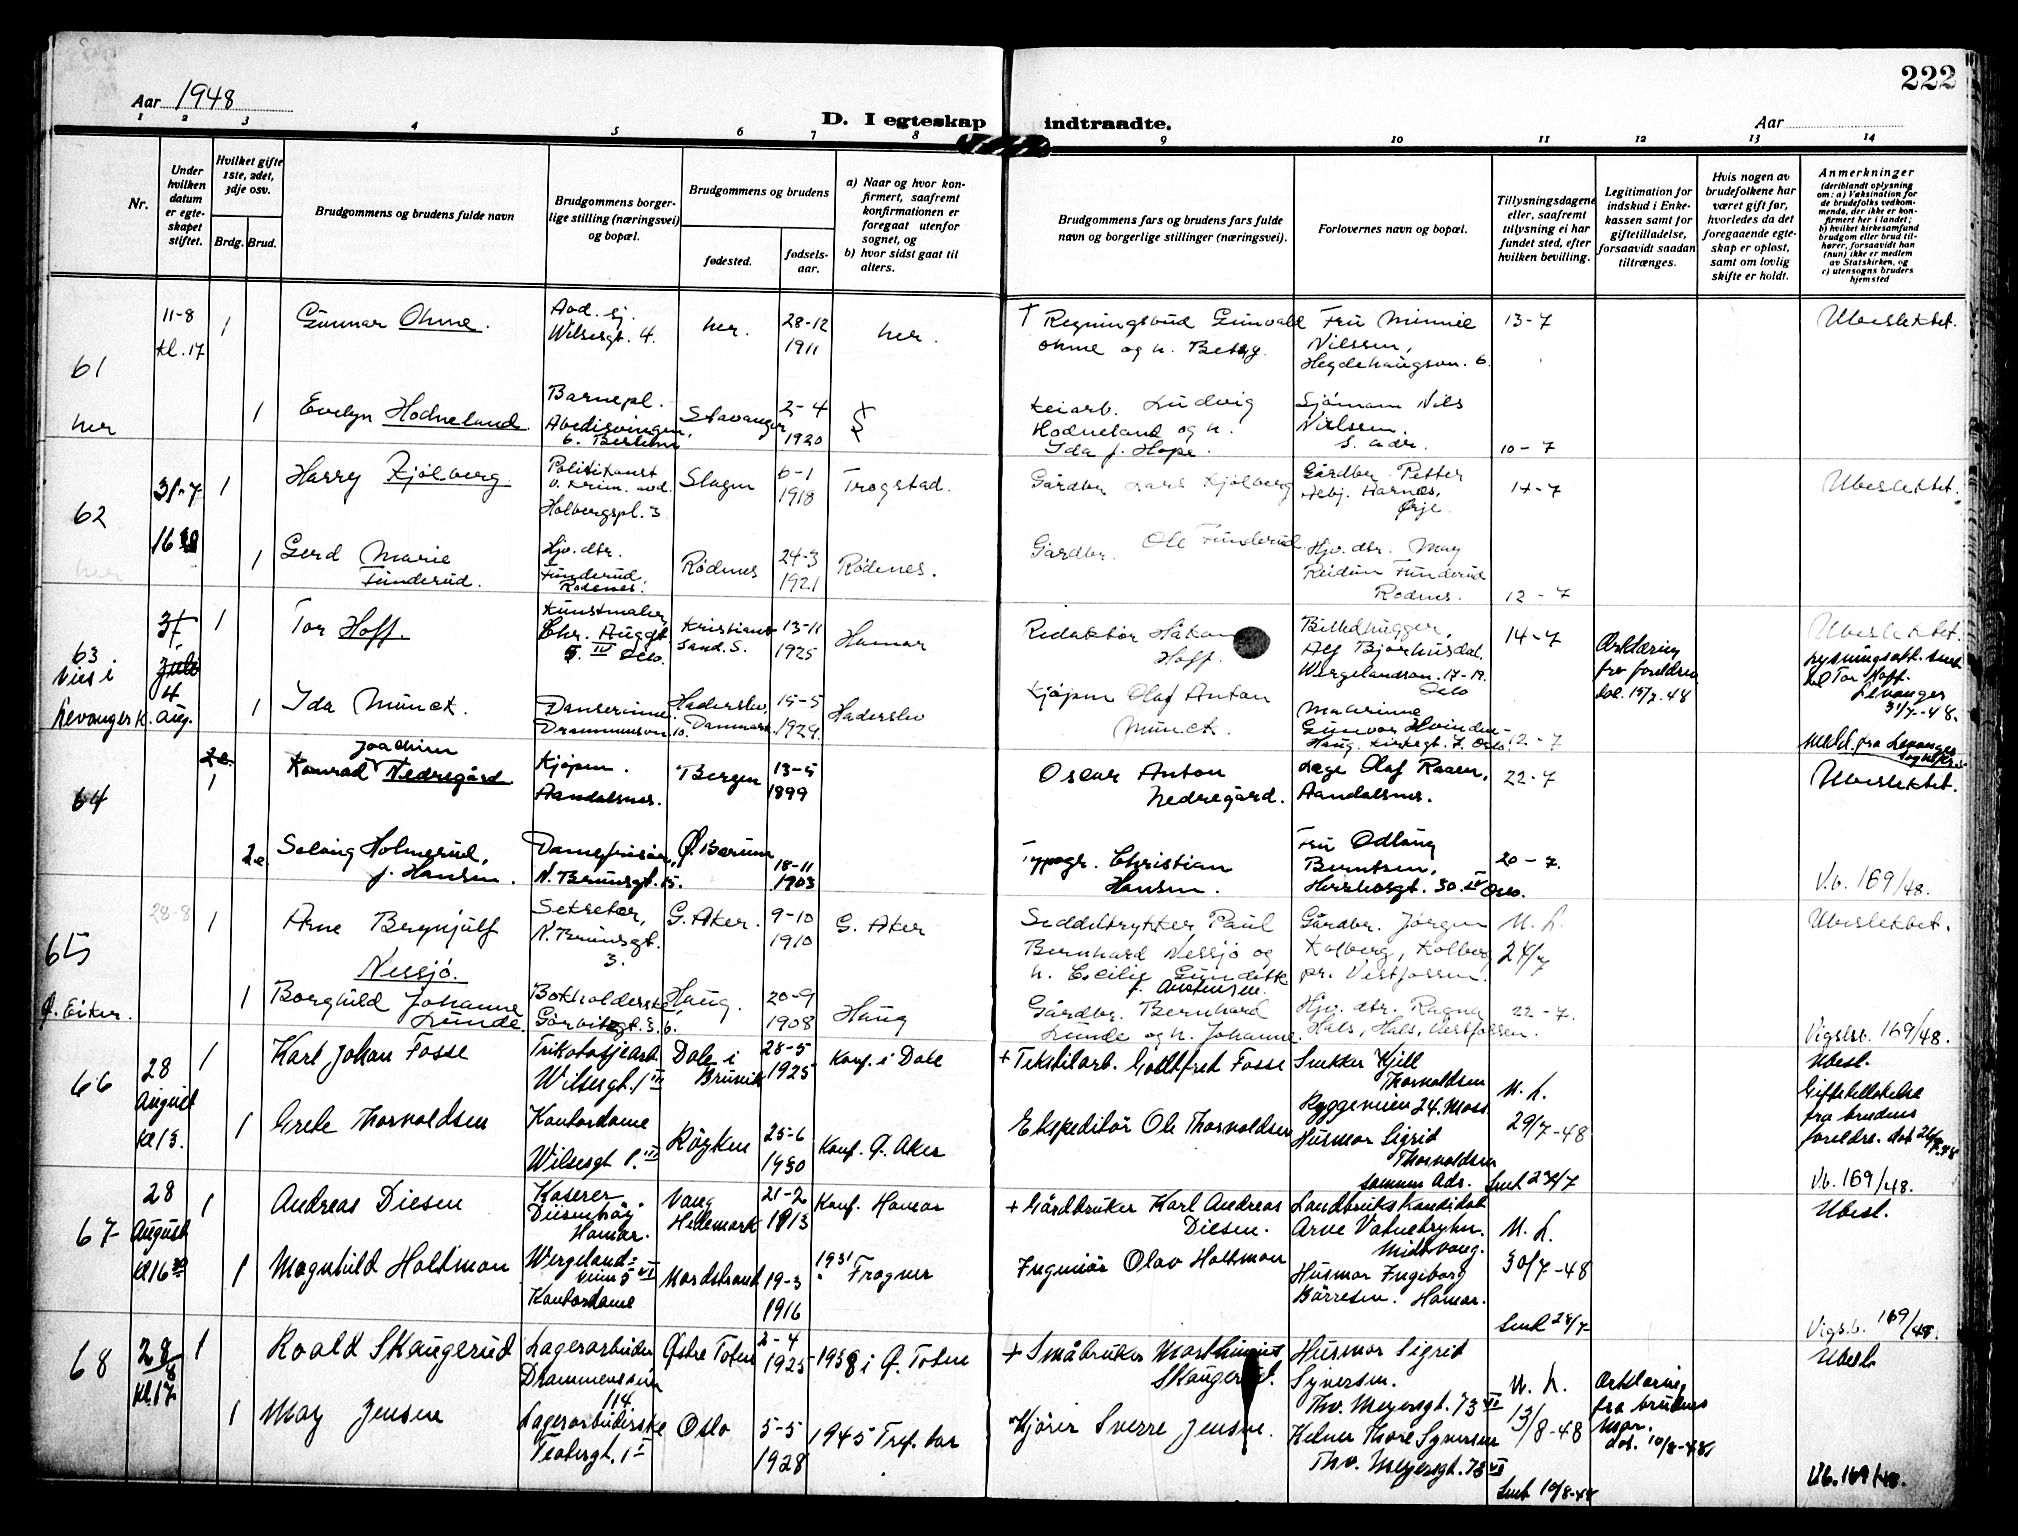 222
Aar 1948
D. I egteskap indtraadte.
Aar
1 2 3 4 5 6 7 8 9 10 11 12 13 14
Nr.
Under hvilken datum er egteskapet stiftet.
Hvilket gifte 1ste, 2det, 3dje osv.
Brdg. Brud.
Brudgommens og brudens fulde navn
Brudgommens borgerlige stilling (næringsvei) og bopæl.
Brudgommens og brudens
fødested.
fødselsaar.
a) Naar og hvor konfirmert, saafremt konfirmationen er foregaat utenfor sognet, og
b) hvor sidst gaat til alters.
Brudgommens fars og brudens fars fulde navn og borgerlige stillinger (næringsvei).
Forlovernes navn og bopæl.
Tillysningsdagene eller, saafremt tillysning ei har fundet sted, efter hvilken bevilling.
Legitimation for indskud i Enkekassen samt for giftetilladelse, forsaavidt saadan tiltrænges.
Hvis nogen av brudefolkene har været gift før, hvorledes da det foregaaende egteskap er opløst, samt om lovlig skifte er holdt.
Anmerkninger
(deriblandt oplysning om: a) Vaksination for de brudefolks vedkommende, der ikke er konfirmert her i landet;
b) hvilket kirkesamfund brudgom eller brud tilhører, forsaavidt han (hun) ikke er medlem av Statskirken, og
c) utensogns bruders hjemsted
61
her
11-8
kl. 17
1 Gunnar Ohme.
Avd. sj.
Wilsesgt. 4.
her. 28-12
1911
her.
† Regningsbud Gunvald
Ohme og h. Betsy.
Fru Minnie
Nilssen,
Hegdehaugsvn. 6.
13-7
Ubeslektet.
1 Evelyn Hodneland
Barnepl.
6. Bestum
Stavanger 2-4
1920
Keiarb. Ludvig
Hodneland og h.
Ida f. Hope.
Sjömann Nils
Nilssen.
s. adr.
10-7
62
her
31-7
1 Harry Kjølberg
Politikonst
v. Krim. avd.
Holbergspl. 3
Slagen 6-1
1918
Trøgstad.
Gårdbr. Lars Kjølberg
Gårdbr. Petter
Ørje.
14-7
Ubeslektet.
1 Gerd Marie
Funderud.
Hjv. dtr.
Funderud,
Rødenes.
Rødenes 24-3
1921
Rødenes.
Gårdbr. Ole Funderud.
Hjv. dtr. May
Reidun Funderud
Rødenes.
12-7
63.
Vies i
Levanger k.
4
Aug.
1 Tor Hoff.
Kunstmaler
Chr. Auggt.
5. IV Oslo.
Kristiansand. S.
13-11
1925
Hamar
Redaktör Håkon
Hoff.
Billedhugger,
Alf Bjørhusdal.
Wergelandsvn. 17-19.
Oslo
14-7
Erklæring
fra foreldre
dat. 15/7. 48
Ubeslektet.
Lysningsatt. sendt
til Tor Hoff.
Levanger
31/7-48.
1 Ida Munck.
Danserinne.
Drammensvn 10.
Haderslev,
Danmark
15-5
1929
Haderslev
Kjøpm Olaf Anton
Munck.
12-7
meld. fra Levanger
64
2e.
1
Konrad Joachim Nedregård
Kjøpm.
Aandalsnes.
Bergen 13-5
1899
Oscar Anton
Nedregård.
Læge Olaf Raaen,
Aandalsnes.
22-7
Ubeslektet.
2e Solveig Holmsrud,
f. Hansen.
Damefrisør,
N. Brunsgt. 15.
Ø. Bærum 18-11
1903
Typogr. Christian
Hansen.
Fru Odlaug
Berntsen,
30. IV Oslo.
20-7.
V.b. 169/48.
65
Ø. Eiker.
28-8
1 Arne Brynjulf
Nessjö.
Sekretær,
N. Brunsgt.
3.
G. Aker. 9-10
1910
G. Aker
Seddeltrykker Paul
Bernhard Nessjö og
h. Cecilie
f. Austensen.
Gårdbr. Jørgen
Kolberg, Kolberg
pr. Vestfossen.
M. L.
24/7
Ubeslektet.
1 Borghild Johanne
Lunde.
Bokholderske
Gørbitzgt. 3.
Haug. 20-9
1908
Haug
Gårdbr. Bernhard
Lunde og h. Johanne.
Hjv. dtr. Ragna
Hals, Hals, Vestfossen.
22-7.
Vigslsb. 169/48.
66
28
August
kl 13.
1 Karl Johan Fosse
Trikotasjearb
Wilsesgt. 1 III
Dale i
Bruvik
28-5
1925
Konf. i Dale
+ Tekstilarb. Gottfred Fosse
Snekker Kjell
Thorvaldsen
Ryggeveien 24. Moss.
M. L.
Ubesl.
Giftetillatelse
fra brudens
foreldre. dat
1 Grete Thorvaldsen
Kontordame
Wilsesgt 1. III
Röyken 25-6
1930
Konf. Ø. Aker
Ekspeditör Ole Thorvaldsen
Husmor Sigrid
Thorvaldsen
samme Adr.
29/7-48
Vb. 169/48.
67
28
August
kl 16 30
1 Andreas Diesen
Kaserer
Hamar.
Vang
Hedemark
21-2
1913
Konf. Hamar
+ Gårdbruker Karl Andreas
Diesen.
Landbrukskandidat
Arve Vatnebryhn.
Midtvang.
M. L.
30/7-48
Ubesl.
1 Magnhild Holtmon
Wergelands-
veien 5 VI
Kontordame
Nordstrand 19-3
1916
1931
Frogner
Ingeniör Olav Holtmon
Husmor Ingeborg
Börresen. Hamar.
Vigsb. 169/48.
68
28/8
kl. 17
1 Roald Skaugerud
Lagerarbeider
Drammensveien
114.
Østre Toten 2-4
1925
1938 i Ø. Toten
+ Småbruker Marthinius
Skaugerud.
Husmor Sigrid
Syversen.
Thv. Meyersgt. 73 VI
M. L.
13/8-48
Erklæring
fra brudens
Mor.
dat. 10/8-48
Ubesl.
1 May Jensen
Lagerarbeiderske
Oslo 5-5
1928
1945 Tref. har
Kjörer Sverre Jensen.
Kelner Thore Syversen
Thv. Meyersgt. 73 VI
Sendt 19/8-48
Vb. 169/48.